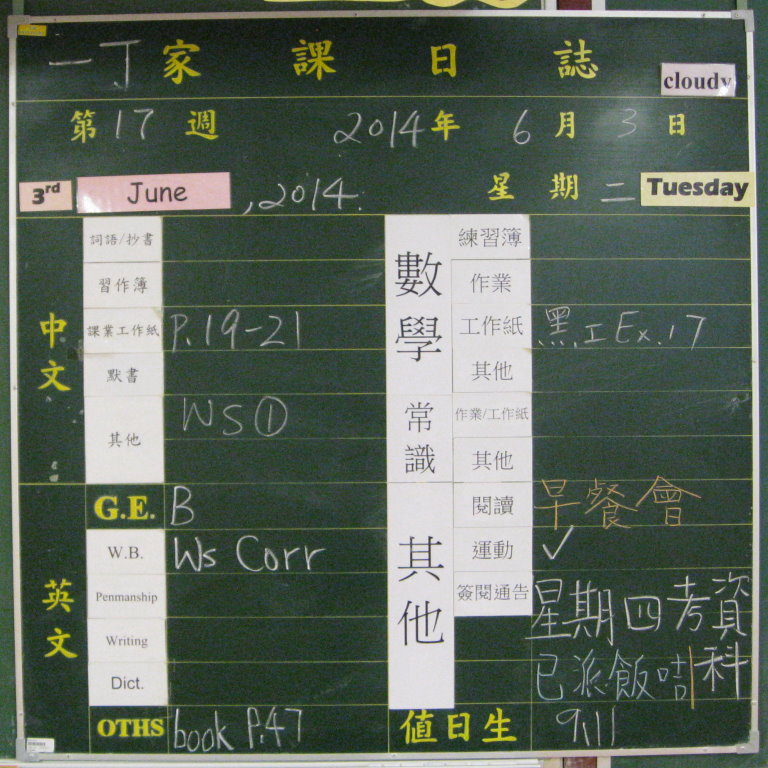 一丁家課日誌
cloudy
第17週 2014年6月3日
3rd June, 2014. 星期二 Tuesday
中文
詞語/抄書
習作簿
課業工作紙 P.19-21
默書
其他 WS①
英文
G.E. B
W.B. Ws Corr
Penmanship
Writing
Dict.
OTHS book P.47
數學
練習簿
作業
工作紙 黑工Ex.17
其他
常識
作業/工作紙
其他
其他
閱讀 早餐會
運動 ✓
簽閱通告 星期四考資科
已派飯咭
值日生 9,11